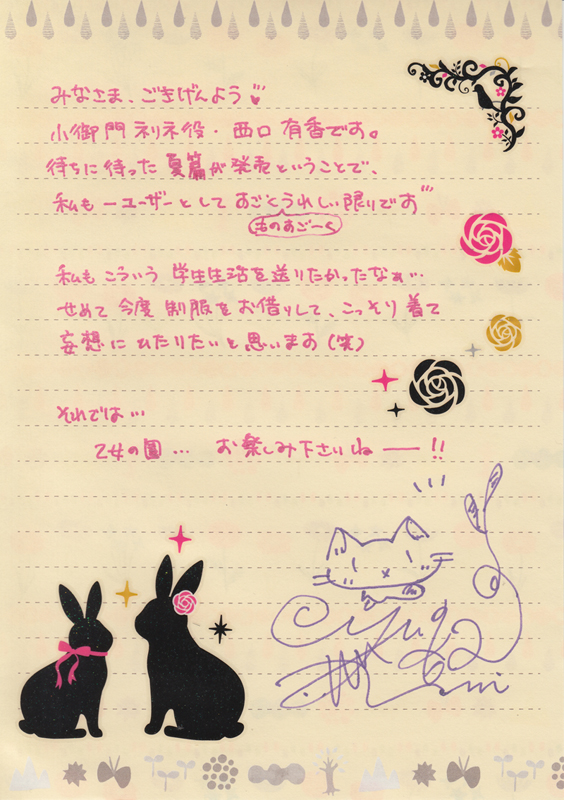 みなさま、ごきげんよう
小御門 ネリネ役・西口 有香です。
待ちに待った 夏篇が発売ということで、
私も一ユーザーとして すごくうれしい限りです
私も こういう 学生生活を送りたかったなぁ…
せめて 今度 制服をお借りして、こっそり 着て
妄想に ひたりたいと思います(笑)
それでは…
乙女の園… お楽しみ下さいね──!!